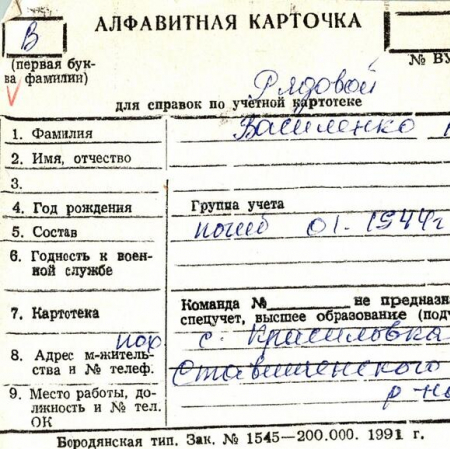 В
АЛФАВИТНАЯ КАРТОЧКА
(первая бук-
ва фамилии)
№ ВУ
Рядовой
для справок по учетной картотеке
1. Фамилия Василенко
2. Имя, отчество
3.
4. Год рождения Группа учета
5. Состав погиб 01. 1944г
6. Годность к воен-
ной службе
7. Картотека Команда №________ не предназна
спецучет, высшее образование (под
8. Адрес м-житель-
ства и № телеф.
пор. с. Красиловка
Ставищенского
р-н
9. Место работы, до-
лжность и № тел.
ОК
Бородянская тип. Зак. № 1545—200.000. 1991 г.